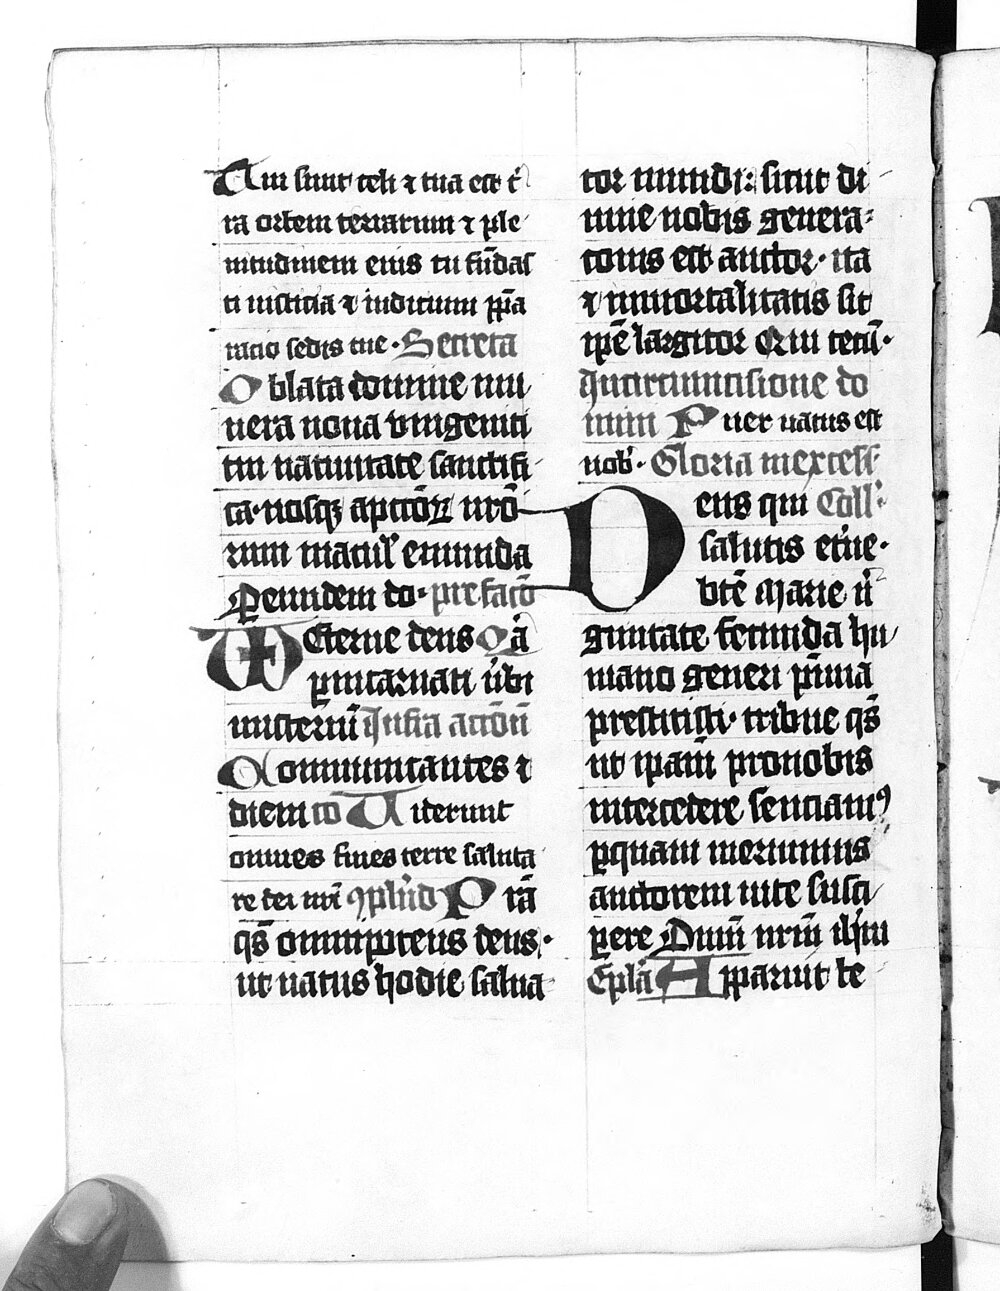 Tui sunt celi ⁊ tua est t̉
ra orbem terrarum ⁊ ple
nitudinem eius tu fūdas
ti iusticia ⁊ iudicium p̄pa
racio sedis tue · Secreta
Oblata domine mu
nera noua vnigeniti
tui natiuitate sanctifi
ca · nosqꝫ a pctōꝝ nrō
rum macul̉ emunda
Per eundem do · prefacō
VEterne deus Q̄a
p incarnati ūbi
misteriū Infra actōn̄
Communicantes ⁊
diem co Viderunt
omnes fines terre saluta
re dei nr̄i ꝯplnd̉ Prā
qs̄ omnipotens deus ·
ut natus hodie salua
tor mundi : sicut di
uine nobis genera
tionis est auctor · ita
⁊ inmortalitatis sit
ip̄e largitor Qui tecū ·
In circumcisione do
mini Puer natus est
nob̉ · Gloria in excels̉
Deus qui Coll̉
salutis et̉ne ·
btē Marie ū
ginitate fecunda hu
mano generi p̄mia
prestitisti · tribue qs̄
ut ipam̄ pro nobis
intercedere senciamꝰ
ꝑ quam meruimus
auctorem uite susci
pere Dnm̄ nrm̄ ih̄m
Epl̄a Apparuit be